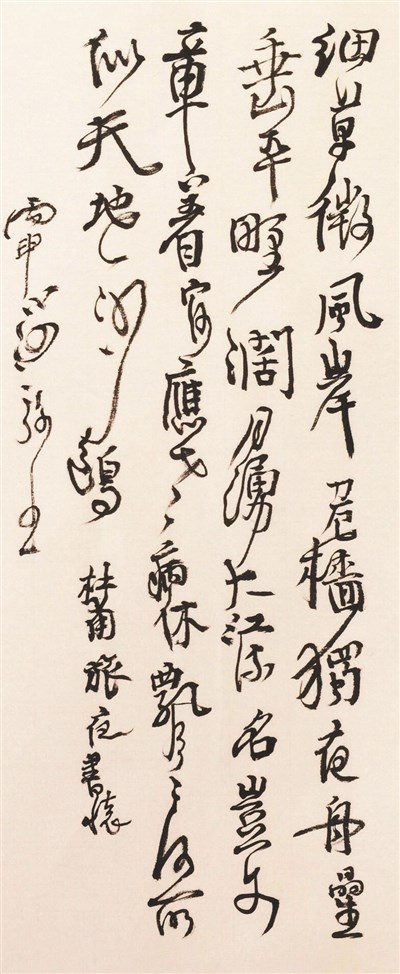 細草微風岸危檣獨夜舟星
垂平野闊月湧大江流名豈文
章著官應老病休飄〻何所
似天地一沙鷗 杜甫旅夜書懷
丙申